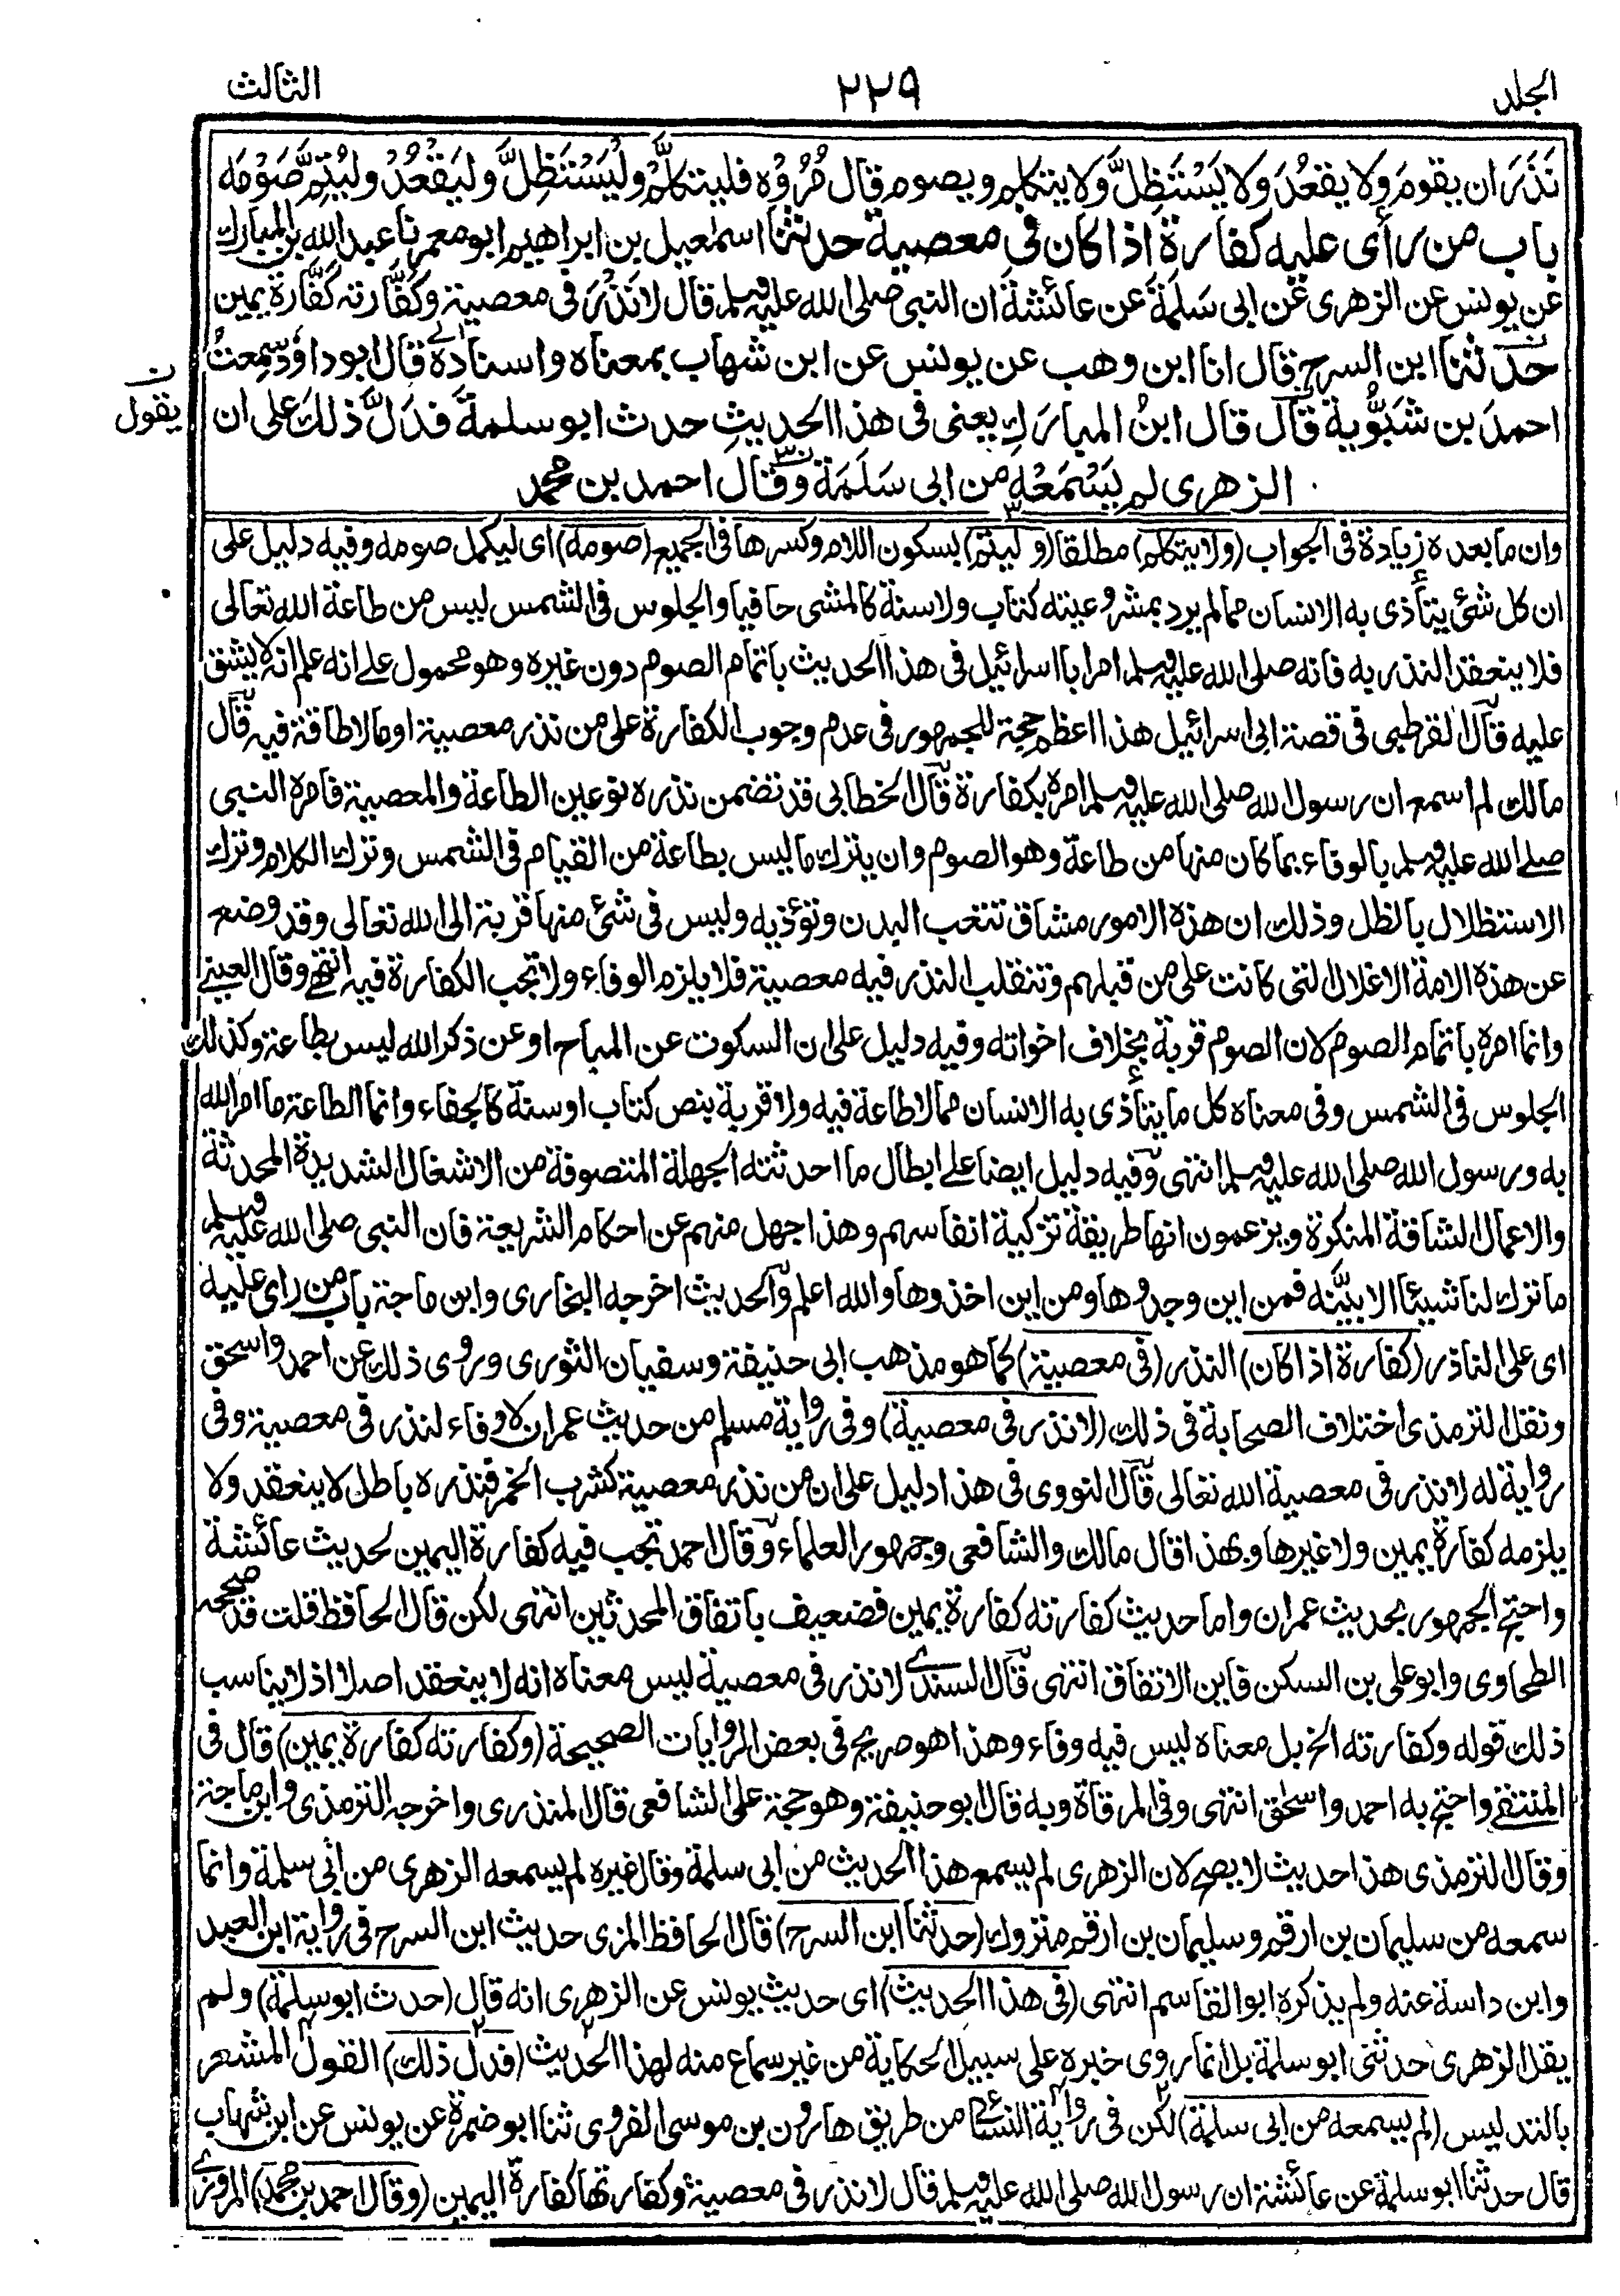 الجلد ٢٢٩ الثالث
نَذَرَ ان يقومَ ولا يقعُدَ ولا يَسْتَظِلَّ ولا يتكلم ويصوم قال مُرُوْه فليتكلَّمْ ولْيَسْتَظِلَّ ولْيَقْعُدْ ولْيُتِمَّ صَوْمَه
باب من رأى عليه كفارة اذا كان فى معصية حدثنا اسمٰعيل بن ابراهيم ابو معمر نا عبد الله بن المبارك
عن يونس عن الزهرى عن ابى سَلَمَةَ عن عائشة ان النبى صلى الله عليه وسلم قال لا نَذْرَ فى معصية وكفّارته كَفّارة يمين
حدثنا ابن السرح قال انا ابن وهب عن يونس عن ابن شهاب بمعناه واسناده قال ابو داؤد سمعتُ
احمدَ بن شَبُّوية قال قال ابنُ المبارَكِ يعنى فى هذا الحديثِ حدث ابو سلمةَ فدلَّ ذلك على ان
ن يقول
الزهرى لم يَسْمَعْه من ابى سَلَمَة وقال احمد بن محمد
وان ما بعده زيادة فى الجواب (ولا يتكلم) مطلقا (وليتم) بسكون اللام وكسرها فى الجميع (صومه) اى ليكمل صومه وفيه دليل على
ان كل شئ يتأذى به الانسان مما لم يرد بمشروعيته كتاب ولا سنة كالمشى حافيا والجلوس فى الشمس ليس من طاعة الله تعالى
فلا ينعقد النذر به فانه صلى الله عليه وسلم امر ابا اسرائيل فى هذا الحديث باتمام الصوم دون غيره وهو محمول على انه علم انه لا يشق
عليه قال القرطبى فى قصة ابى اسرائيل هذا اعظم حجة للجمهور فى عدم وجوب الكفارة على من نذر معصية او ما لا طاقة فيه قال
مالك لم اسمع ان رسول الله صلى الله عليه وسلم امره بكفارة قال الخطابى قد تضمن نذره نوعين الطاعة والمعصية فامره النبى
صلى الله عليه وسلم بالوفاء بما كان منها من طاعة وهو الصوم وان يترك ما ليس بطاعة من القيام فى الشمس وترك الكلام وترك
الاستظلال بالظل وذلك ان هذه الامور مشاق تتعب البدن وتؤذيه وليس فى شئ منها قربة الى الله تعالى وقد وضع
عن هذه الامة الاغلال التى كانت على من قبلهم وتنقلب النذر فيه معصية فلا يلزم الوفاء ولا تجب الكفارة فيه انتهى وقال العينى
وانما امره باتمام الصوم لان الصوم قربة بخلاف اخواته وفيه دليل على ان السكوت عن المباح او عن ذكر الله ليس بطاعة وكذلك
الجلوس فى الشمس وفى معناه كل ما يتأذى به الانسان مما لا طاعة فيه ولا قربة بنص كتاب او سنة كالجفاء وانما الطاعة ما امر الله
به ورسول الله صلى الله عليه وسلم انتهى وفيه دليل ايضا على ابطال ما احدثته الجهلة المتصوفة من الاشغال الشديدة المحدثة
والاعمال الشاقة المنكرة ويزعمون انها طريقة تزكية انفاسهم وهذا جهل منهم عن احكام الشريعة فان النبى صلى الله عليه وسلم
ما ترك لنا شيئا الا بيّنه فمن اين وجدوها ومن اين اخذوها والله اعلم والحديث اخرجه البخارى وابن ماجة باب من راى عليه
اى على الناذر (كفارة اذا كان) النذر (فى معصية) كما هو مذهب ابى حنيفة وسفيان الثورى وروى ذلك عن احمد واسحق
ونقل الترمذى اختلاف الصحابة فى ذلك (لا نذر فى معصية) وفى رواية مسلم من حديث عمران لا وفاء لنذر فى معصية وفى
رواية له لا نذر فى معصية الله تعالى قال النووى فى هذا دليل على ان من نذر معصية كشرب الخمر فنذره باطل لا ينعقد ولا
يلزمه كفارة يمين ولا غيرها وبهذا قال مالك والشافعى وجمهور العلماء وقال احمد تجب فيه كفارة اليمين لحديث عائشة
واحتج الجمهور بحديث عمران واما حديث كفارته كفارة يمين فضعيف باتفاق المحدثين انتهى لكن قال الحافظ قلت قد صححه
الطحاوى وابو على بن السكن فاين الاتفاق انتهى قال السندى لا نذر فى معصية ليس معناه انه لا ينعقد اصلا اذ لا يناسب
ذلك قوله وكفارته الخ بل معناه ليس فيه وفاء وهذا هو صريح فى بعض الروايات الصحيحة (وكفارته كفارة يمين) قال فى
المنتقى واحتج به احمد واسحٰق انتهى وفى المرقاة وبه قال ابو حنيفة وهو حجة على الشافعى قال المنذرى واخرجه الترمذى وابن ماجة
وقال الترمذى هذا حديث لا يصح لان الزهرى لم يسمع هذا الحديث من ابى سلمة وقال غيره لم يسمعه الزهرى من ابى سلمة وانما
سمعه من سليمان بن ارقم وسليمان بن ارقم متروك (حدثنا ابن السرح) قال الحافظ المزى حديث ابن السرح فى رواية ابن العبد
وابن داسة عنه ولم يذكره ابو القاسم انتهى (فى هذا الحديث) اى حديث يونس عن الزهرى انه قال (حدث ابو سلمة) ولم
يقل الزهرى حدثنى ابو سلمة بل انما روى خبره على سبيل الحكاية من غير سماع منه لهذا الحديث (فدل ذلك) القول المشعر
بالتدليس (لم يسمعه من ابى سلمة) لكن فى رواية النسائى من طريق هارون بن موسى الفروى ثنا ابو ضمرة عن يونس عن ابن شهاب
قال حدثنا ابو سلمة عن عائشة ان رسول الله صلى الله عليه وسلم قال لا نذر فى معصية وكفارتها كفارة اليمين (وقال احمد بن محمد) المروزى